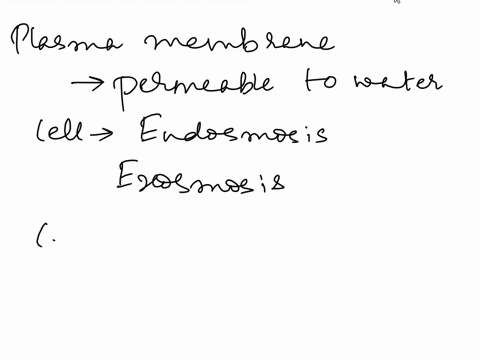 Plasma membrene
→ permeable to water
Cell → Endosmosis
Exosmosis
(